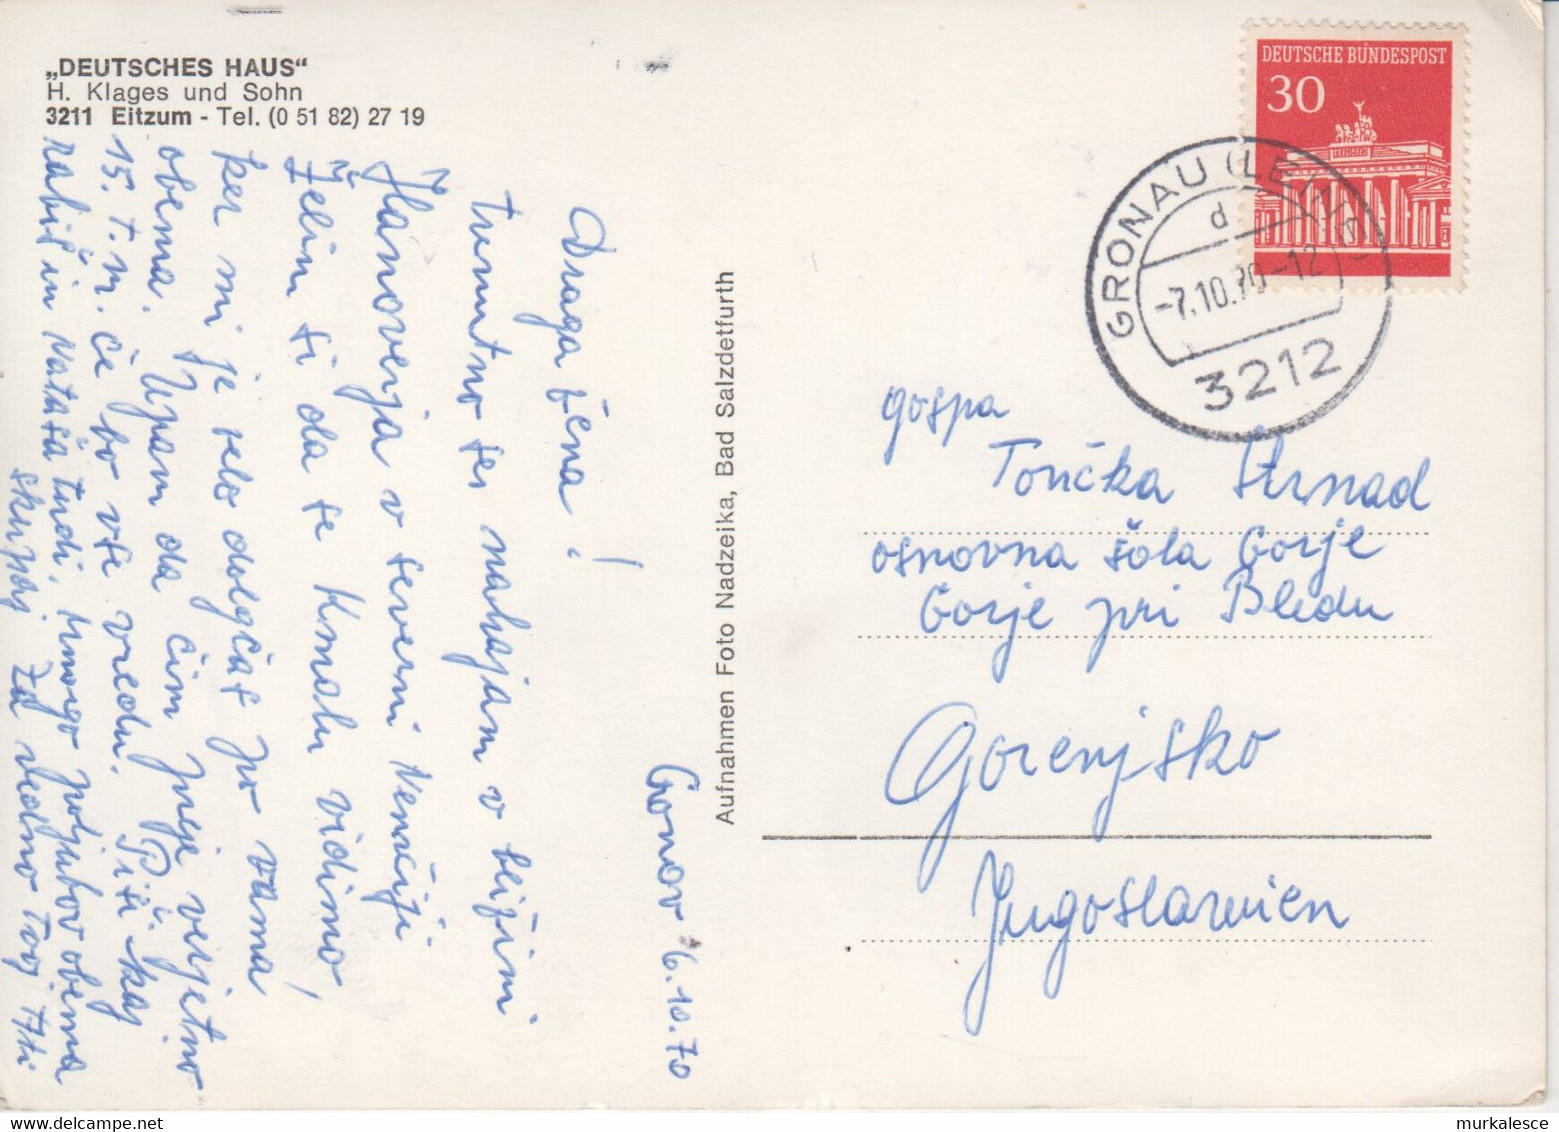 „DEUTSCHES HAUS“
H. Klages und Sohn
3211 Eitzum - Tel. (0 51 82) 27 19
Gronov 6.10.70
Draga žena!
Trenutno se nahajam v bližini
Hanoverja v severni Nemčiji
Želim si da se kmalu vidimo,
ker mi je zelo dolgčas po vama
obema. Upam da čim preje verjetno
15. t.m. če bo vse v redu. Piši kaj
in Nataša tudi. Mnogo poljubov obema
skupaj za vedno Tvoj
Aufnahmen Foto Nadzeika, Bad Salzdetfurth
DEUTSCHE BUNDESPOST
30
GRONAU (LEINE)
d
-7.10.70-12
3212
gospa
Tončka Strnad
osnovna šola Gorje
Gorje pri Bledu
Gorenjsko
Jugoslawien
murkalesce